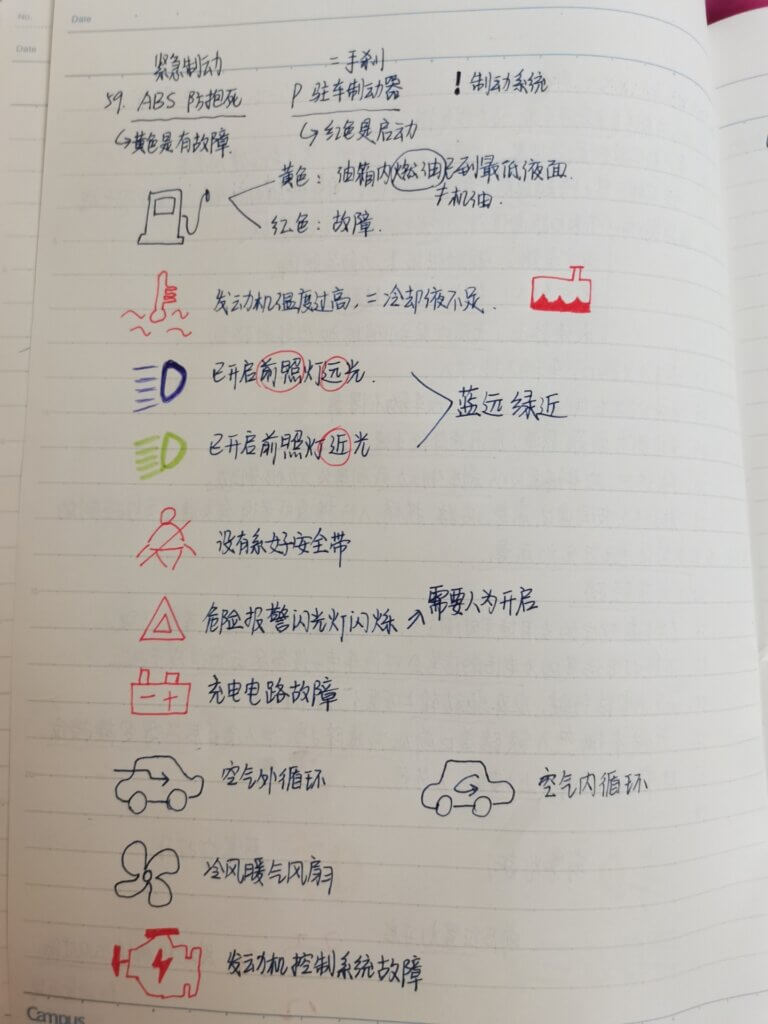 No.
Date
Date
紧急制动 = 手刹
59. ABS 防抱死 P 驻车制动器 ! 制动系统
↳黄色是有故障. ↳红色是启动
黄色: 油箱内燃油已到最低液面.
≠机油.
红色: 故障.
发动机温度过高, = 冷却液不足.
已开启前照灯远光.
蓝远绿近
已开启前照灯近光
没有系好安全带
危险报警闪光灯闪烁 → 需要人为开启
- +
充电电路故障
空气外循环 空气内循环
冷风暖气风扇
发动机控制系统故障
Campus